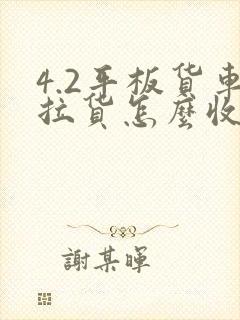 4.2平板货車
拉货怎麼收
謝某暉